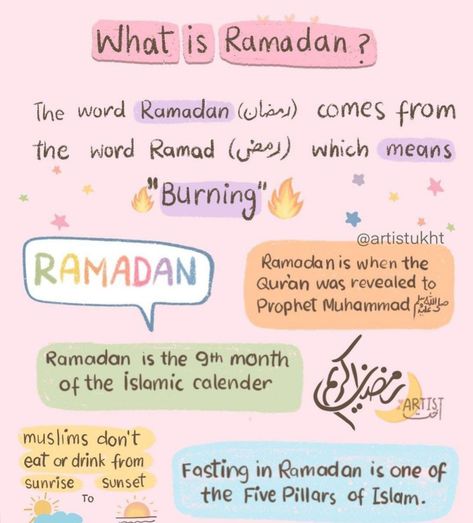 What is Ramadan?
The word Ramadan (رمضان) comes from
the word Ramad (رمض) which means
"Burning"
@artistukht
RAMADAN
Ramadan is when the
Qur'an was revealed to
Prophet Muhammad ﷺ
Ramadan is the 9th month
of the islamic calender
رمضان كريم
ARTIST
أخت
muslims don't
eat or drink from
sunrise to sunset
Fasting in Ramadan is one of
the Five Pillars of Islam.